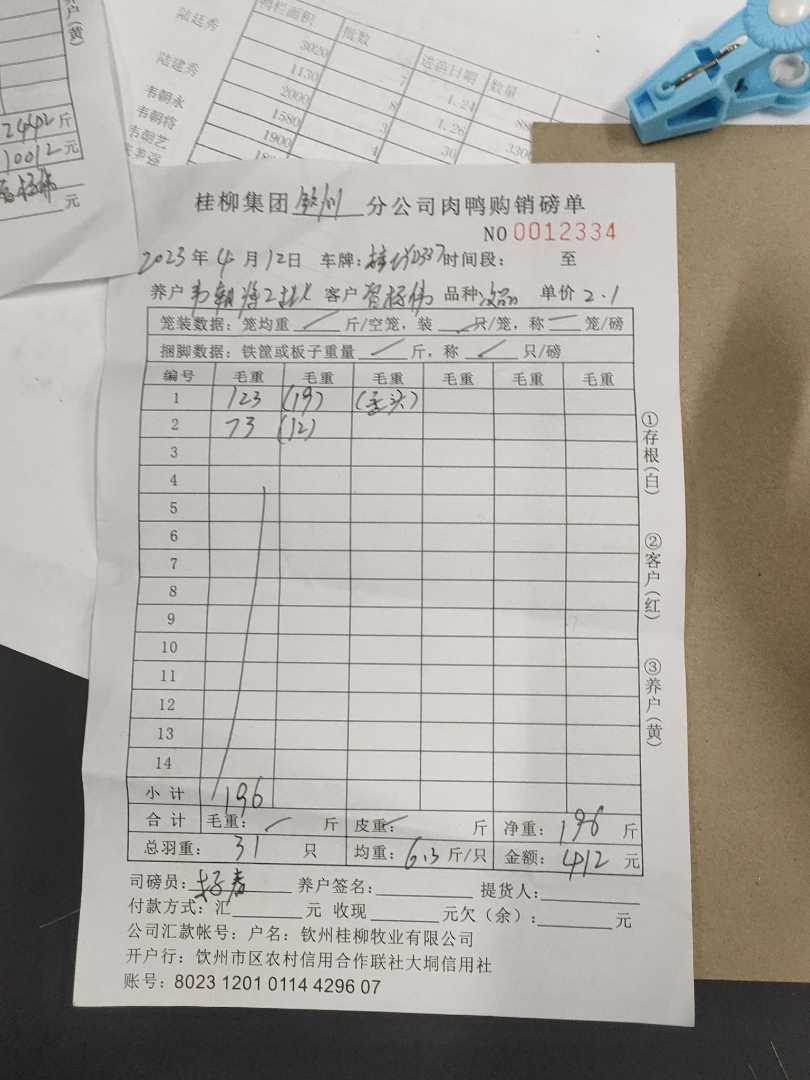 户(黄)
2442斤
10012元
元
鸭栏面积 低数 运苗日期 数量
陆廷秀 3020 7 1.24
陆建秀 1130 8 1.26
韦朝永 2000 3 30
韦朝将 1580 4
韦朝艺 1900
桂柳集团钦州分公司肉鸭购销磅单
NO 0012334
2023年4月12日 车牌: 时间段: 至
养户韦朝将 客户 品种次品 单价2.1
笼装数据: 笼均重 斤/空笼, 装 只/笼, 称 笼/磅
捆脚数据: 铁筐或板子重量 斤, 称 只/磅
编号 毛重 毛重 毛重 毛重 毛重 毛重
1 123 (19) (歪头)
2 73 (12)
3
4
5
6
7
8
9
10
11
12
13
14
小计 196
合计 毛重: 斤 皮重: 斤 净重: 196 斤
总羽重: 31 只 均重: 6.3 斤/只 金额: 412 元
司磅员: 养户签名: 提货人:
付款方式: 汇 元 收现 元欠(余): 元
公司汇款帐号: 户名: 钦州桂柳牧业有限公司
开户行: 钦州市区农村信用合作联社大垌信用社
账号: 8023 1201 0114 4296 07
①存根(白)
②客户(红)
③养户(黄)